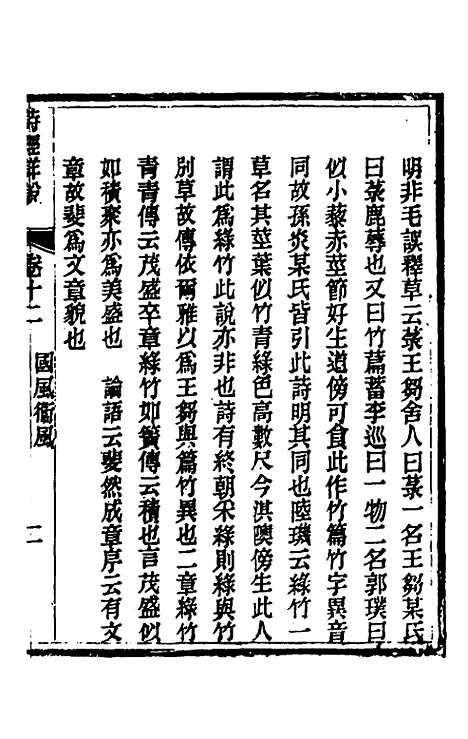 明非毛誤釋草云菉王芻舍人曰菉一名王芻某氏
曰菉鹿蓐也又曰竹萹蓄李巡曰一物二名郭璞曰
似小藜赤莖節好生道傍可食此作竹篇竹字異音
同故孫炎某氏皆引此詩明其同也陸璣云綠竹一
草名其莖葉似竹青綠色高數尺今淇隩傍生此人
謂此爲綠竹此說亦非也詩有終朝采綠則綠與竹
別草故傳依爾雅以爲王芻與篇竹異也二章綠竹
青青傳云茂盛卒章綠竹如簀傳云積也言茂盛似
如積聚亦爲美盛也　論語云斐然成章序云有文
章故斐爲文章貌也
詩經詳說
卷十二
國風衞風